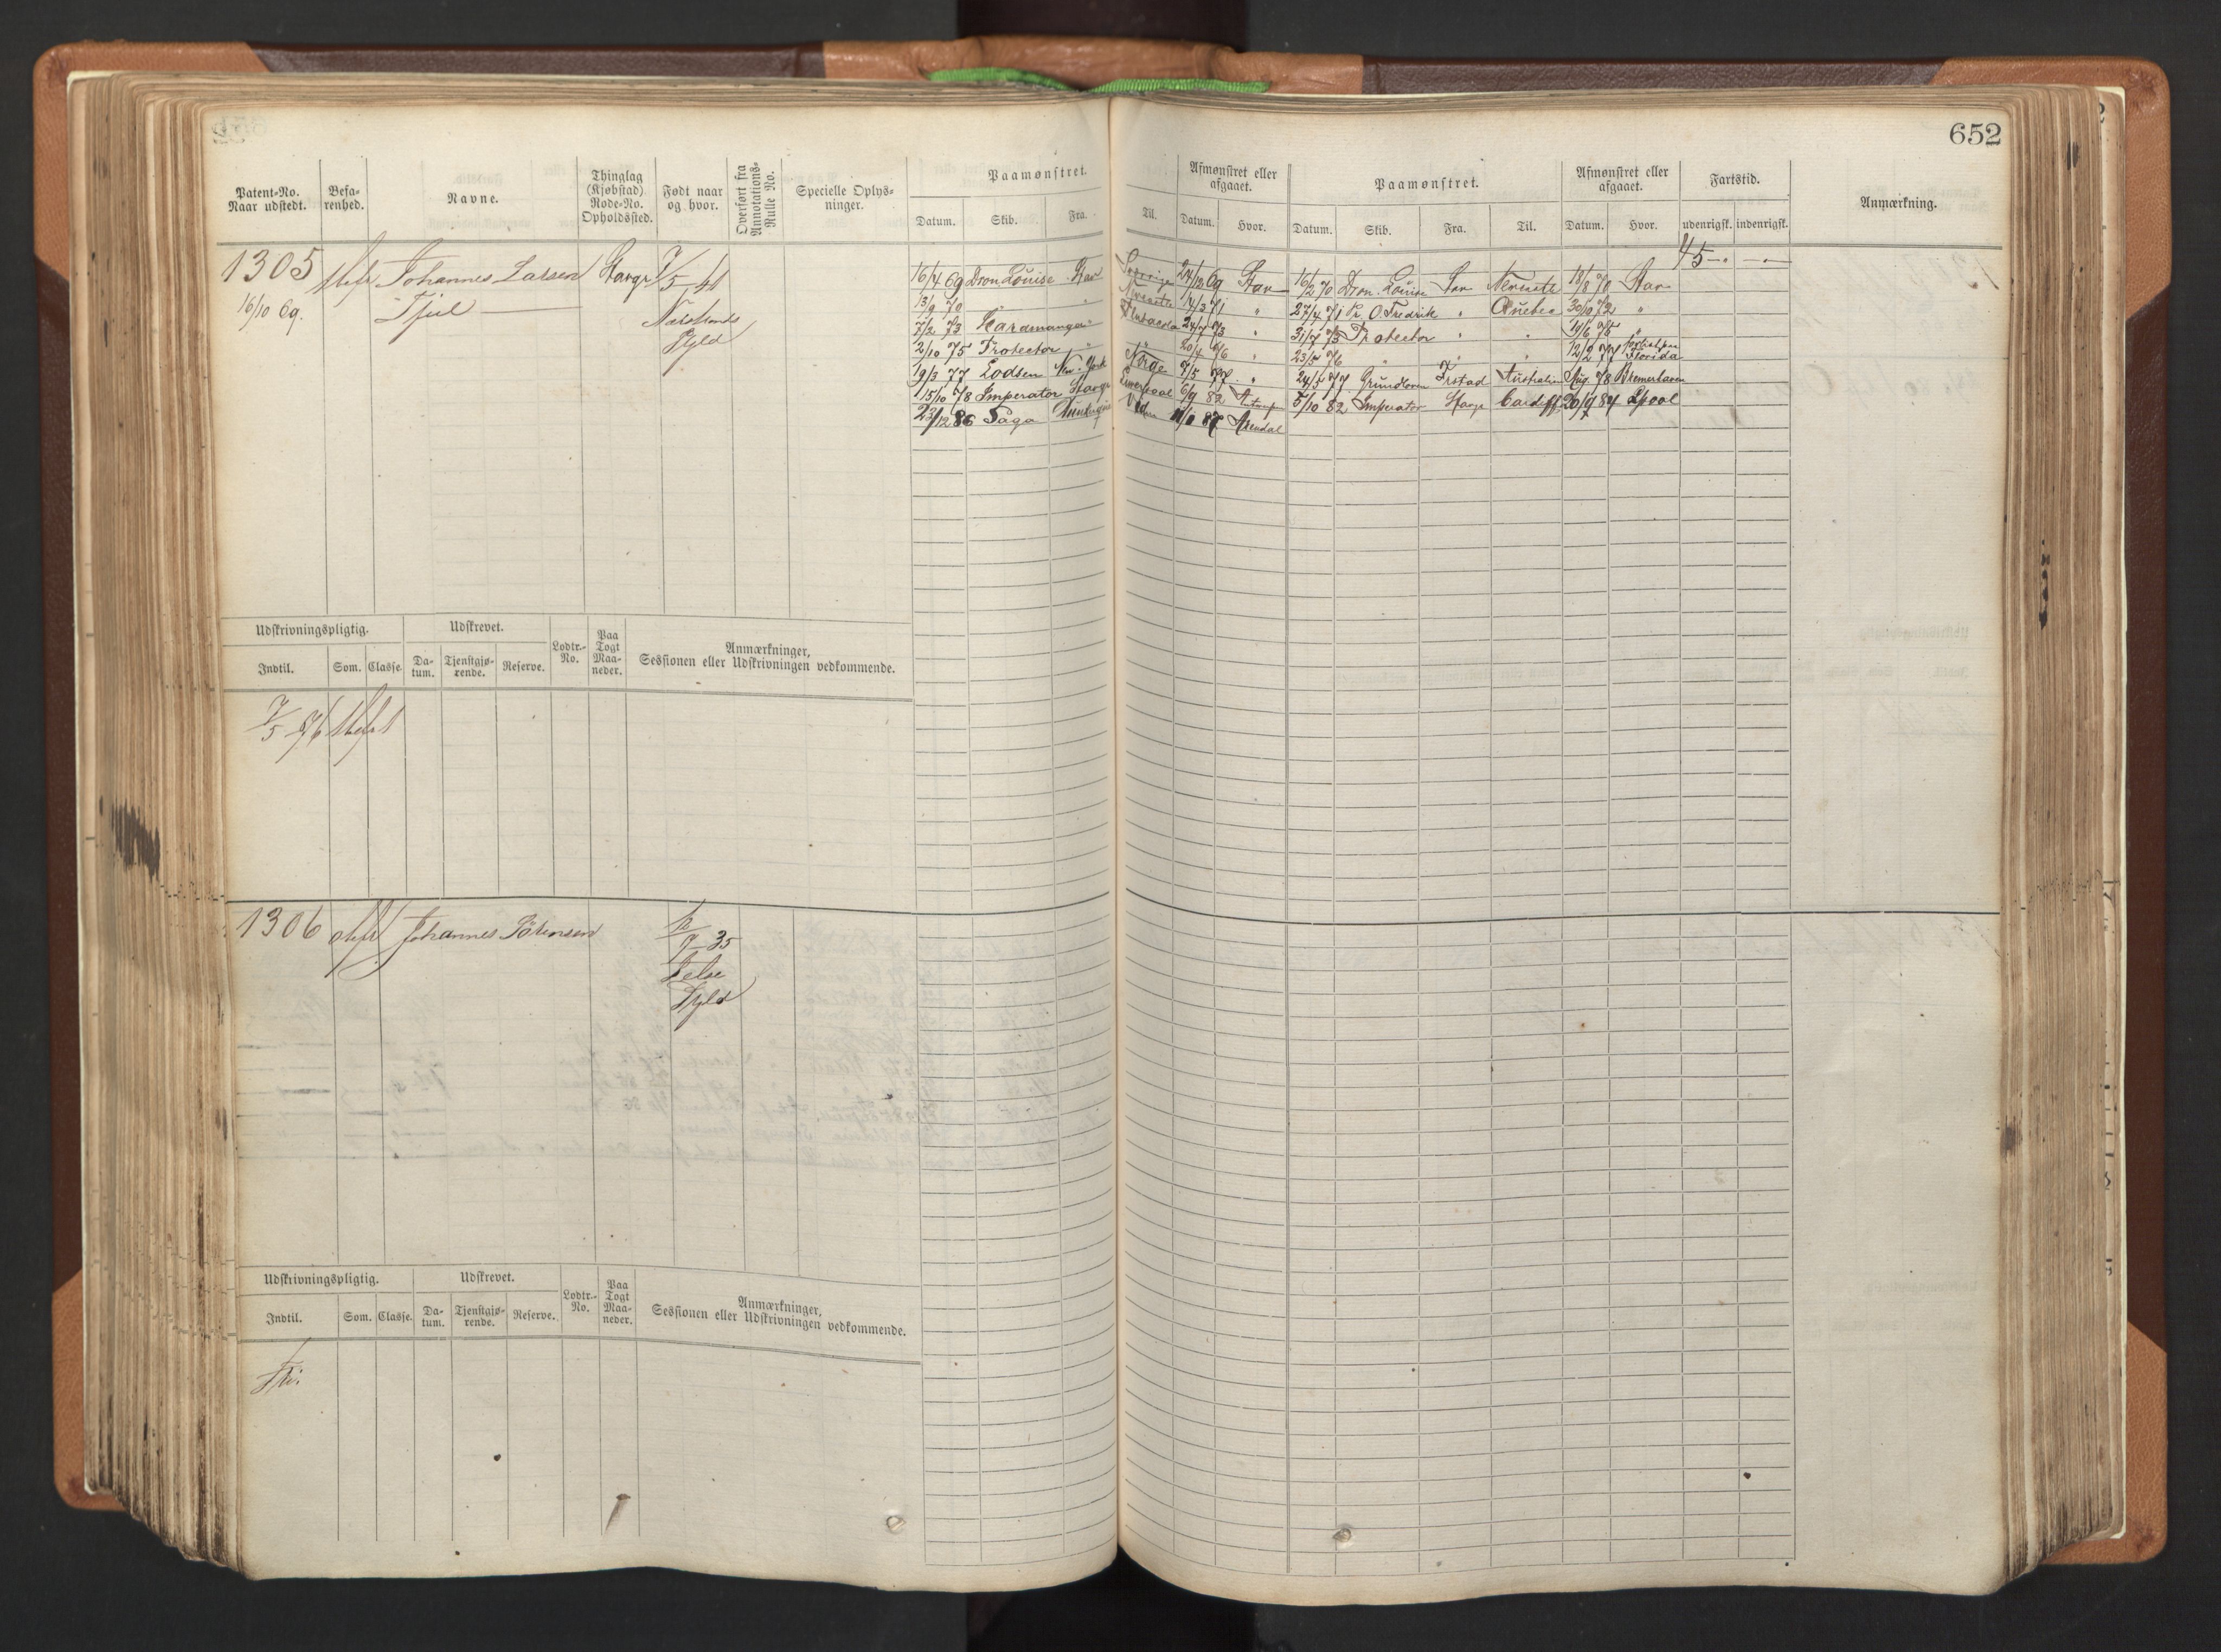 652
Patent-No.
Naar udstedt.
Befa-
renhed.
Navne.
Thinglag
(Kjøbstad)
Rode-No.
Opholdssted.
Født naar
og hvor.
Overført fra
Annotations-
Rulle No.
Specielle Oplys-
ninger.
Paamønstret.
Datum. Skib. Fra. Til.
Afmønstret eller
afgaaet.
Datum. Hvor.
Paamønstret.
Datum. Skib. Fra. Til.
Afmønstret eller
afgaaet.
Datum. Hvor.
Fartstid.
udenrigsk. indenrigsk.
Anmærkning.
1305 Johannes Larsen Stavgr 7/5-41
16/10 69.
45
16/4 69 Dron Louise Stav 24/12 69 Stav 16/2 70 Dron. Louise Stav 18/8 70 Stav
13/9 70 " " 14/3 71 " 27/4 71 Pr. O Fredrik " Quebec 30/10 72 "
7/2 73 Hardmanger " 24/7 73 " 31/7 73 Protector " " 19/6 75 "
2/10 75 Protector " " 20/4 76 " 23/5 76 " " " 12/2 77 Florida
19/3 77 Lodsen New York Norge 7/5 77 " 24/5 77 Grundloven Australien Aug. 78 Bremerhaven
15/10 78 Imperator Stavgr Liverpool 6/9 82 5/10 82 Imperator Stavgr Cardiff 20/9 84 Lpool
23/12 86 Saga 87 Arendal
Udskrivningspligtig.
Indtil. Som. Classe.
Udskrevet.
Da-
tum.
Tjenstgjø-
rende.
Reserve.
Lodtr.-
No.
Paa
Togt
Maa-
neder.
Anmærkninger,
Sessionen eller Udskrivningen vedkommende.
7/5-76
1306 Johannes Sörensen
9-35
Jelse
Fyld
Udskrivningspligtig.
Indtil. Som. Classe.
Udskrevet.
Da-
tum.
Tjenstgjø-
rende.
Reserve.
Lodtr.-
No.
Paa
Togt
Maa-
neder.
Anmærkninger,
Sessionen eller Udskrivningen vedkommende.
Fri.